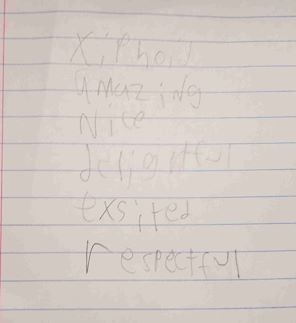 xiphoid
amazing
Nice
deligtful
exsited
respectful